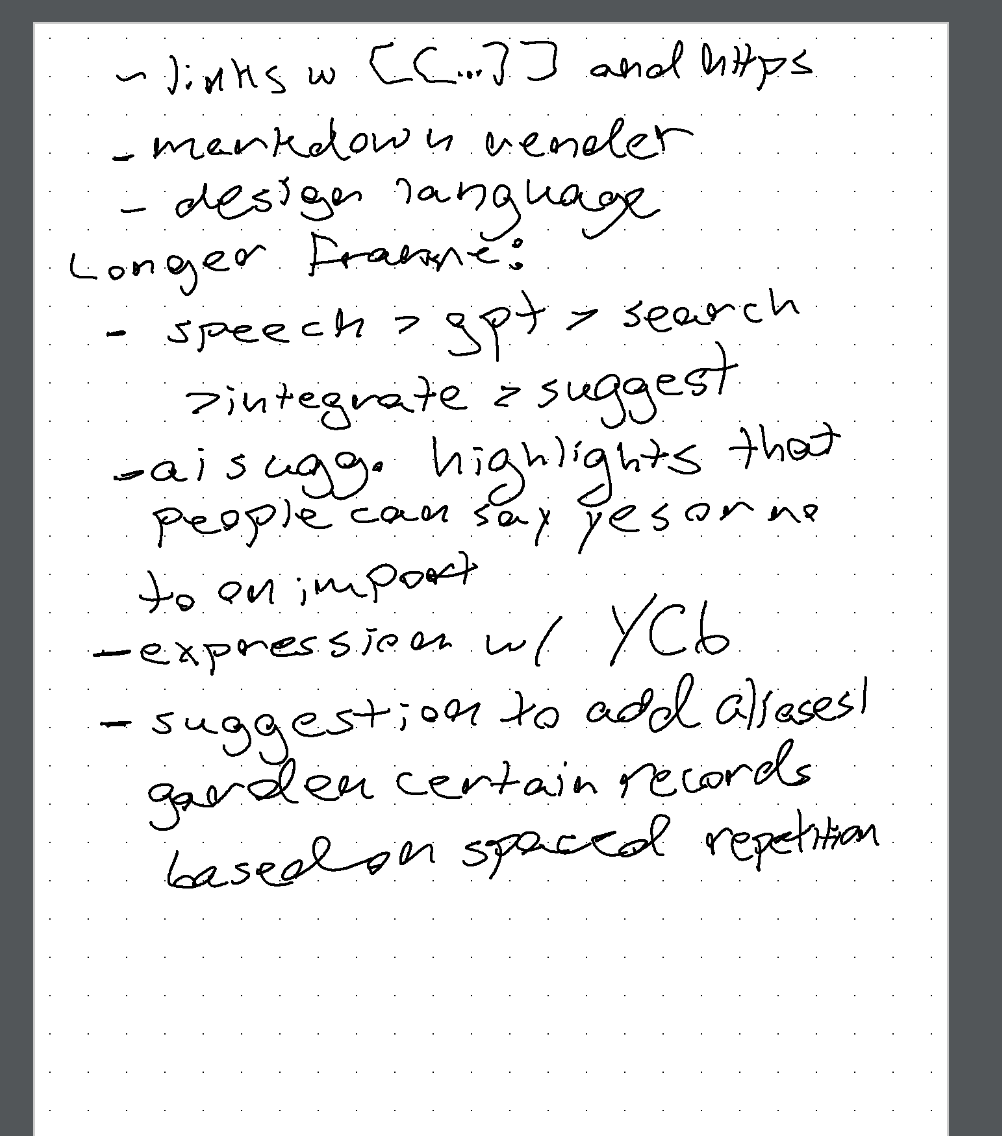 - links w [[...]] and https
- markdown render
- design language
Longer Frame:
- speech > gpt > search
> integrate > suggest
- ai sugg. highlights that
people can say yes or no
to on import
- expression w/ YCb
- suggestion to add aliases/
garden certain records
based on spaced repetition